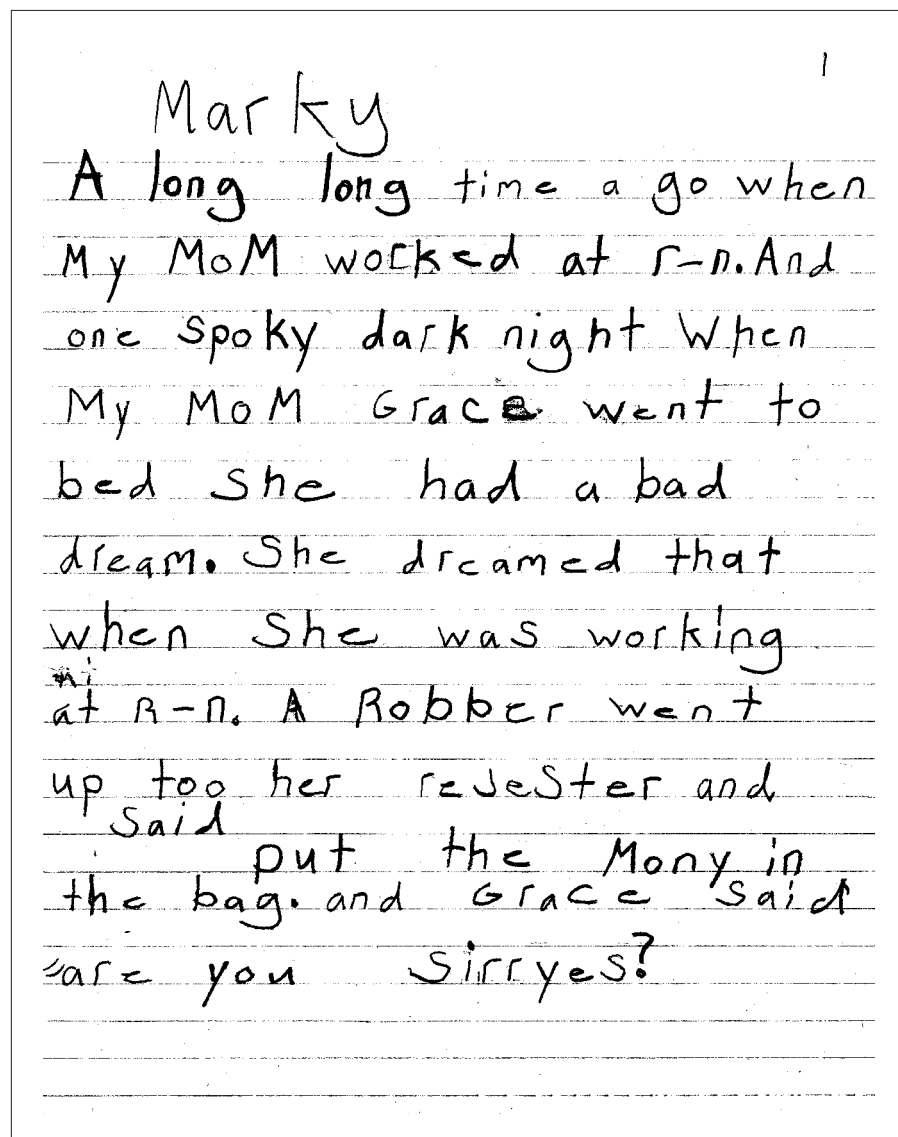 1
Marky
A long long time a go when
My MoM worked at r-n. And
one Spoky dark night When
My MoM Grace went to
bed She had a bad
dream. She dreamed that
when She was working
at R-n. A Robber went
up too her reJeSter and
Said
put the Mony in
the bag. and Grace Said
are you Sirryes?